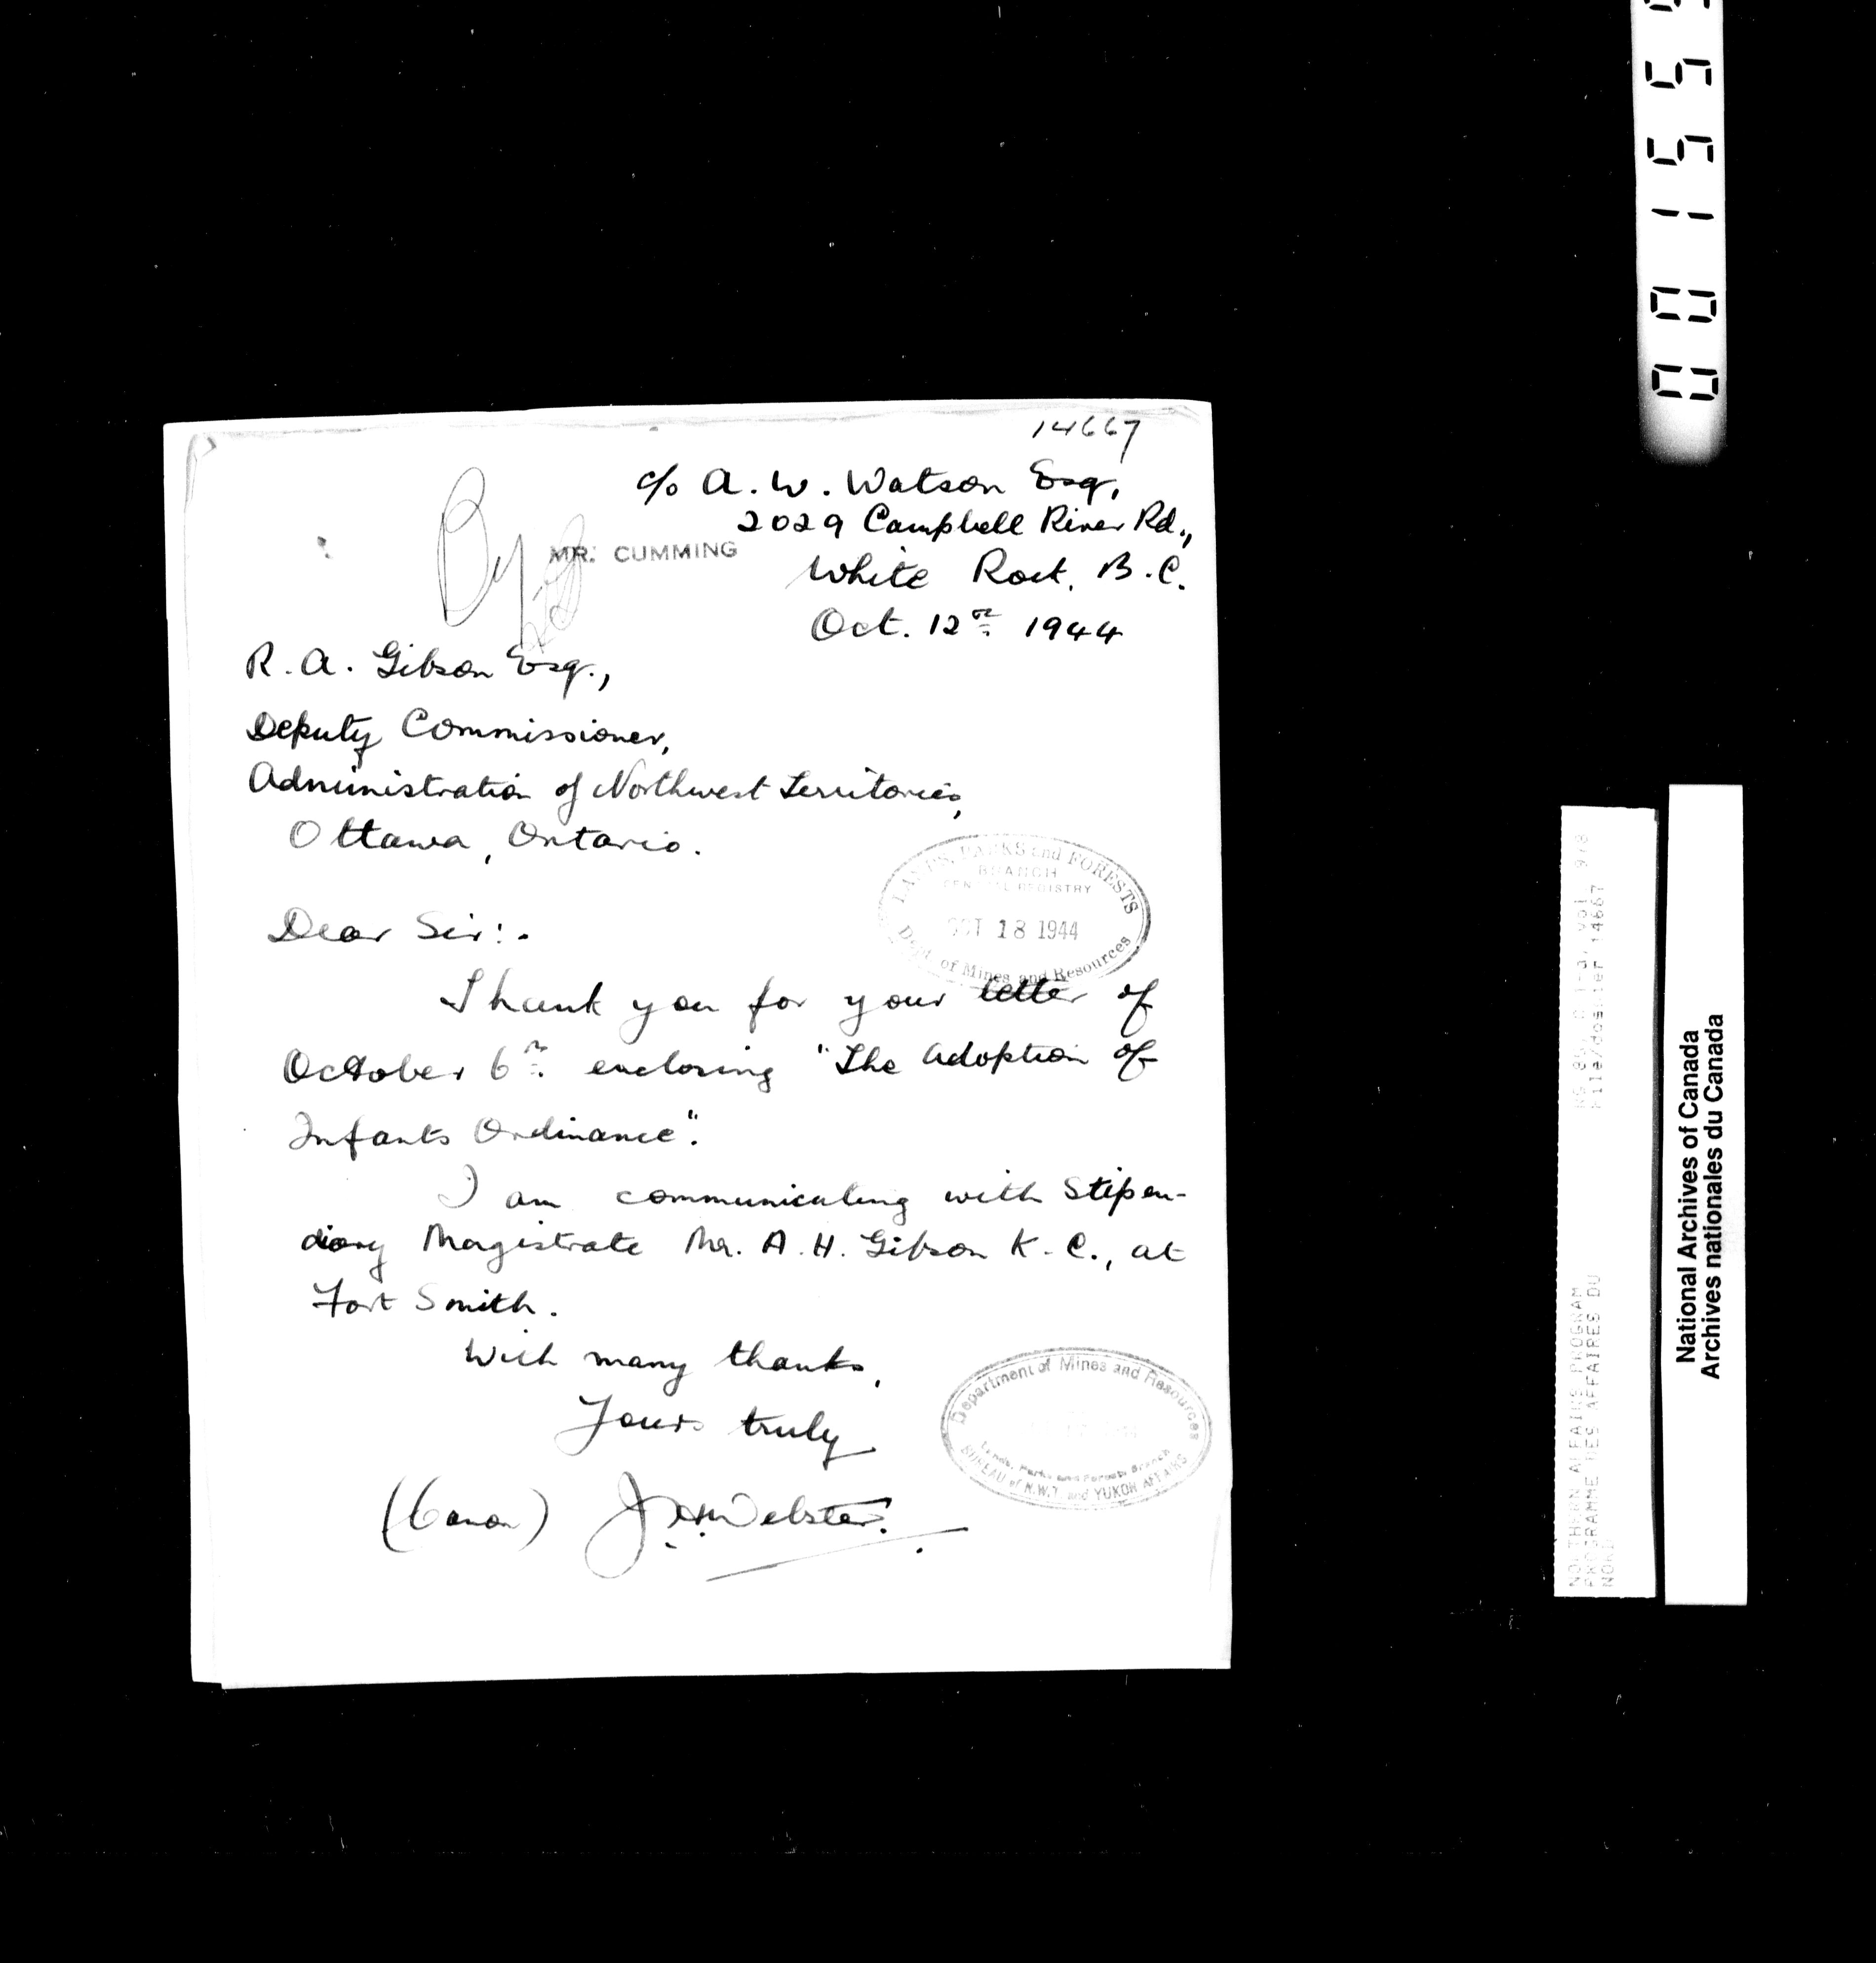 14667
c/o A. W. Watson Esq,
2029 Campbell River Rd.,
MR. CUMMING
White Rock, B.C.
Oct. 12th 1944
R. A. Gibson Esq.,
Deputy Commissioner,
Administration of Northwest Territories,
Ottawa, Ontario.
LANDS, PARKS and FORESTS
BRANCH
CENTRAL REGISTRY
OCT 18 1944
Dept. of Mines and Resources
Dear Sir:-
Thank you for your letter of
October 6th. enclosing "The Adoption of
Infants Ordinance".
I am communicating with Stipen-
diary Magistrate Mr. A. H. Gibson K.C., at
Fort Smith.
With many thanks,
Yours truly
(Canon) J.H.Webster.
Department of Mines and Resources
Lands, Parks and Forests Branch
BUREAU of N.W.T. and YUKON AFFAIRS
00155
NORTHERN AFFAIRS PROGRAM
PROGRAMME DES AFFAIRES DU
NORD
File/dossier 14667
National Archives of Canada
Archives nationales du Canada